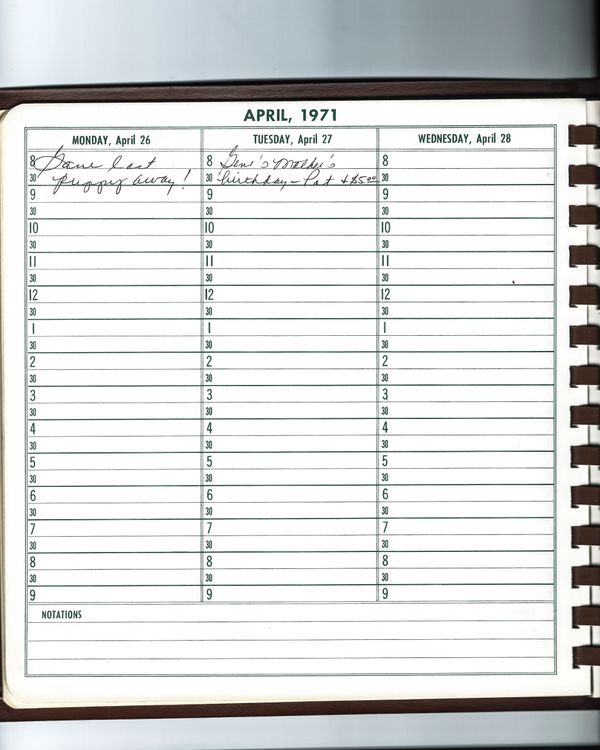 APRIL, 1971
MONDAY, April 26
8 Gave last
30 puppy away!
9
30
10
30
11
30
12
30
1
30
2
30
3
30
4
30
5
30
6
30
7
30
8
30
9
TUESDAY, April 27
8 Gene's Mother's
30 birthday - Pat + $5.00
9
30
10
30
11
30
12
30
1
30
2
30
3
30
4
30
5
30
6
30
7
30
8
30
9
WEDNESDAY, April 28
8
30
9
30
10
30
11
30
12
30
1
30
2
30
3
30
4
30
5
30
6
30
7
30
8
30
9
NOTATIONS